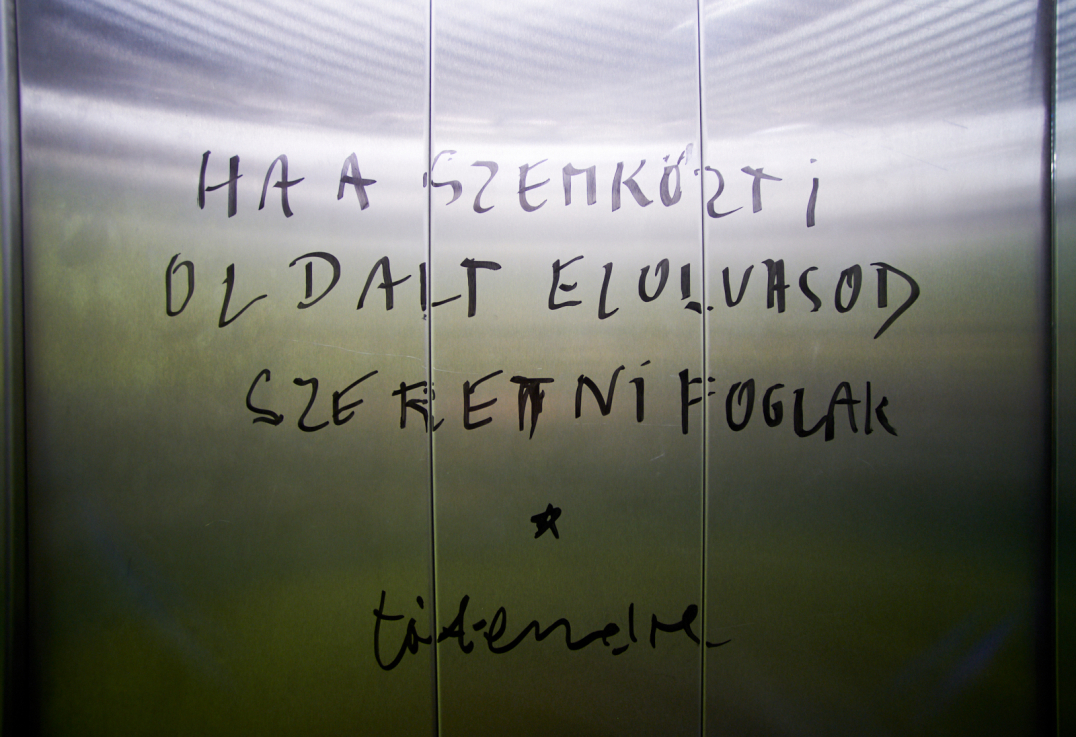 HA A SZEMKÖZTI
OLDALT ELOLVASOD
SZERETNI FOGLAK